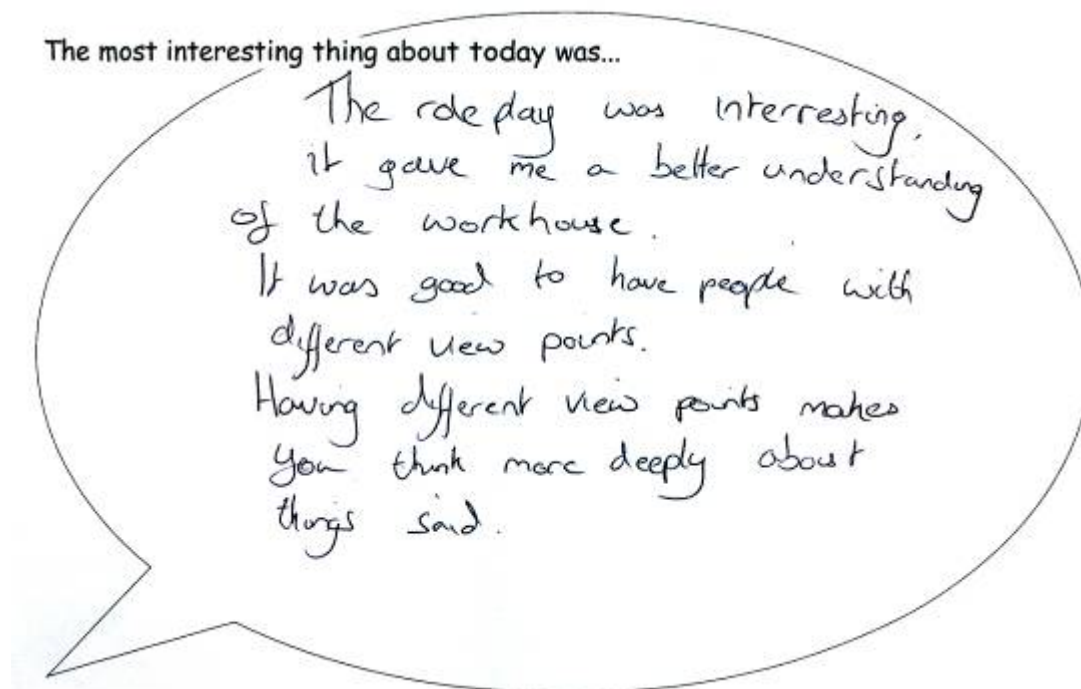 The most interesting thing about today was...
The role play was interresting,
it gave me a better understanding
of the workhouse.
It was good to have people with
different view points.
Having different view points makes
you think more deeply about
things said.